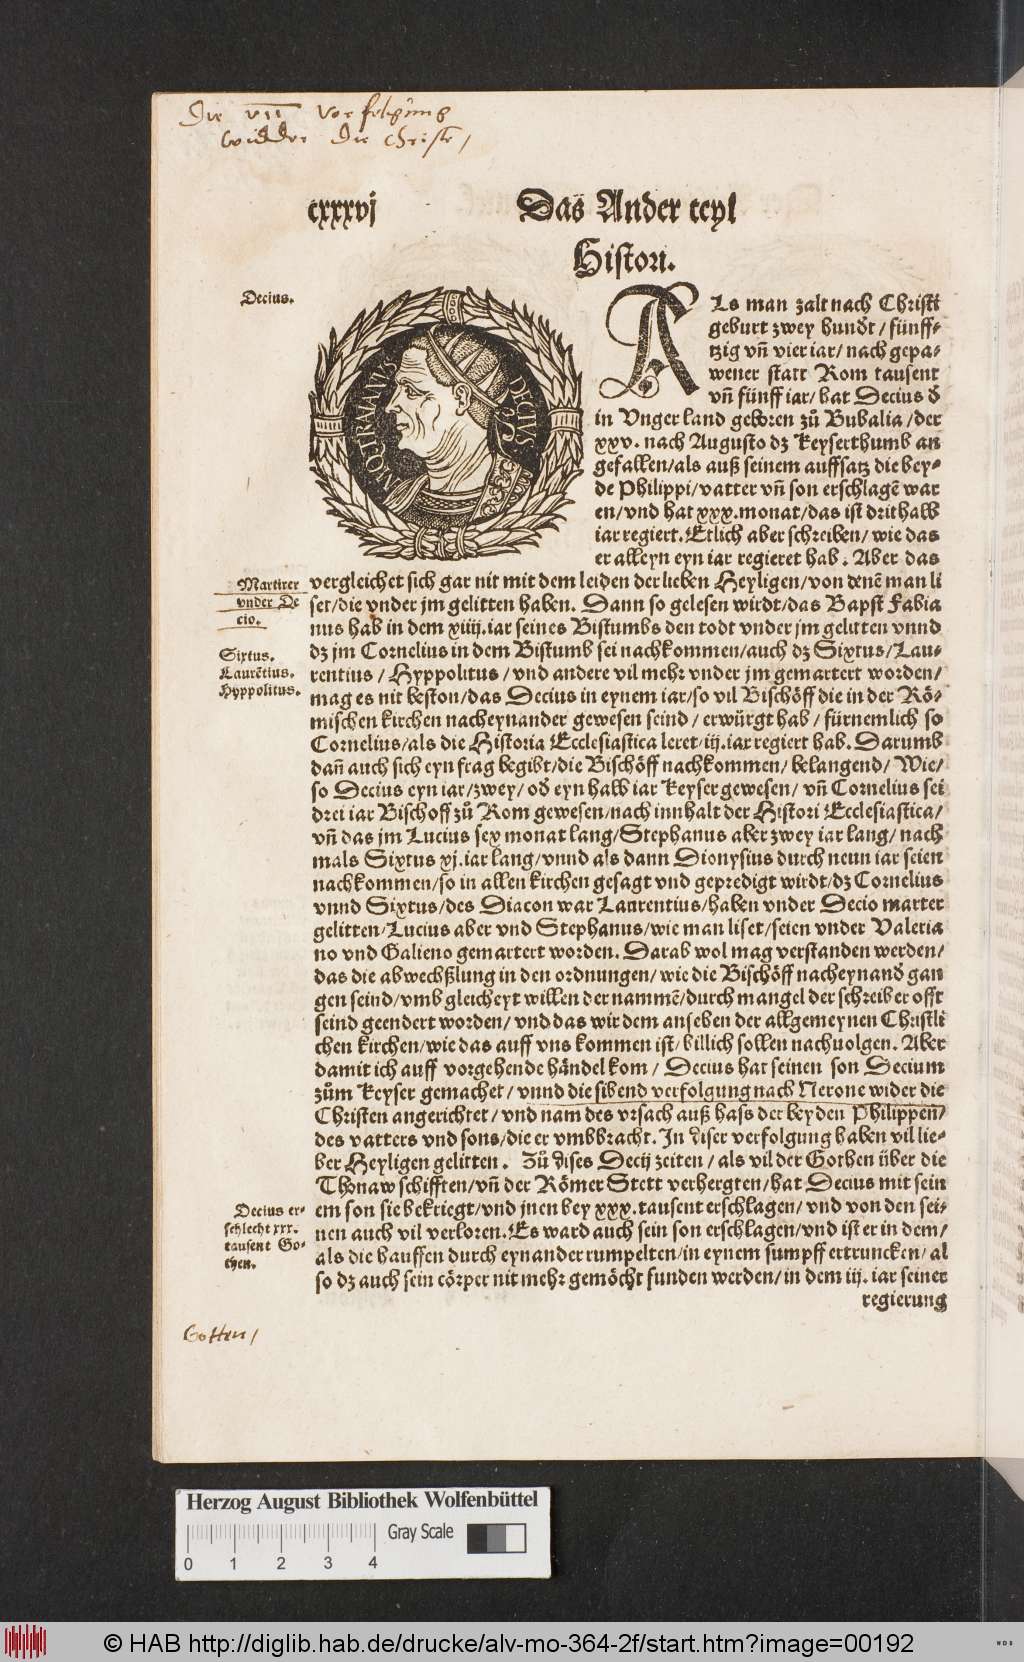 Die VII verfolgung
widder die christē /
cxxxvj
Das Ander teyl
Histori.
Decius.
ALs man zalt nach Christi
geburt zwey hundt / fünff-
tzig vñ vier iar / nach gepa-
wener statt Rom tausent
vñ fünff iar / hat Decius đ
in Vngerland geboren zů Bubalia / der
xxv. nach Augusto dz Keyserthumb an
gefallen / als auß seinem auffsatz die bey-
de Philippi / vatter vñ son erschlagē war
en / vnd hat xxx. monat / das ist drithalb
iar regiert. Etlich aber schreiben / wie das
er alleyn eyn iar regieret hab. Aber das
vergleichet sich gar nit mit dem leiden der lieben Heyligen / von denē man li
set / die vnder jm gelitten haben. Dann so gelesen wirdt / das Bapst Fabia
nus hab in dem xiiij. iar seines Bistumbs den todt vnder jm gelitten vnnd
dz jm Cornelius in dem Bistumb sei nachkommen / auch dz Sixtus / Lau-
rentius / Hyppolitus / vnd andere vil mehr vnder jm gemartert worden /
mag es nit beston / das Decius in eynem iar / so vil Bischöff die in der Rö-
mischen kirchen nacheynander gewesen seind / erwürgt hab / fürnemlich so
Cornelius / als die Historia Ecclesiastica leret / iij. iar regiert hab. Darumb
dañ auch sich eyn frag begibt / die Bischöff nachkommen / belangend / Wie /
so Decius eyn iar / zwey / ođ eyn halb iar Keyser gewesen / vñ Cornelius sei
drei iar Bischoff zů Rom gewesen / nach innhalt der Histori Ecclesiastica /
vñ das jm Lucius sex monat lang / Stephanus aber zwey iar lang / nach
mals Sixtus xj. iar lang / vnnd als dann Dionysius durch neun iar seien
nachkommen / so in allen kirchen gesagt vnd gepredigt wirdt / dz Cornelius
vnnd Sixtus / des Diacon war Laurentius / haben vnder Decio marter
gelitten / Lucius aber vnd Stephanus / wie man liset / seien vnder Valeria
no vnd Galieno gemartert worden. Darab wol mag verstanden werden /
das die abwechßlung in den ordnungen / wie die Bischöff nacheynanđ gan
gen seind / vmb gleicheyt willen der nammē / durch mangel der schreiber offt
seind geendert worden / vnd das wir dem ansehen der allgemeynen Christli
chen kirchen / wie das auff vns kommen ist / billich sollen nachuolgen. Aber
damit ich auff vorgehende händel kom / Decius hat seinen son Decium
zům Keyser gemachet / vnnd die sibend verfolgung nach Nerone wider die
Christen angerichtet / vnd nam des vrsach auß hass der beyden Philippen /
des vatters vnd sons / die er vmbbracht. In diser verfolgung haben vil lie-
ber Heyligen gelitten. Zů dises Decij zeiten / als vil der Gothen über die
Thonaw schifften / vñ der Römer Stett verhergten / hat Decius mit sein
em son sie bekriegt / vnd jnen bey xxx. tausent erschlagen / vnd von den sei-
nen auch vil verloren. Es ward auch sein son erschlagen / vnd ist er in dem /
als die hauffen durch eynander rumpelten / in eynem sumpff ertruncken / al
so dz auch sein cörper nit mehr gemöcht funden werden / in dem iij. iar seiner
regierung
DECIVS
Martirer
vnder De
cio.
Sixtus.
Laurētius.
Hyppolitus.
Decius er-
schlecht xxx.
tausent Go-
then.
Gotten /
Herzog August Bibliothek Wolfenbüttel
Gray Scale
0 1 2 3 4
© HAB http://diglib.hab.de/drucke/alv-mo-364-2f/start.htm?image=00192